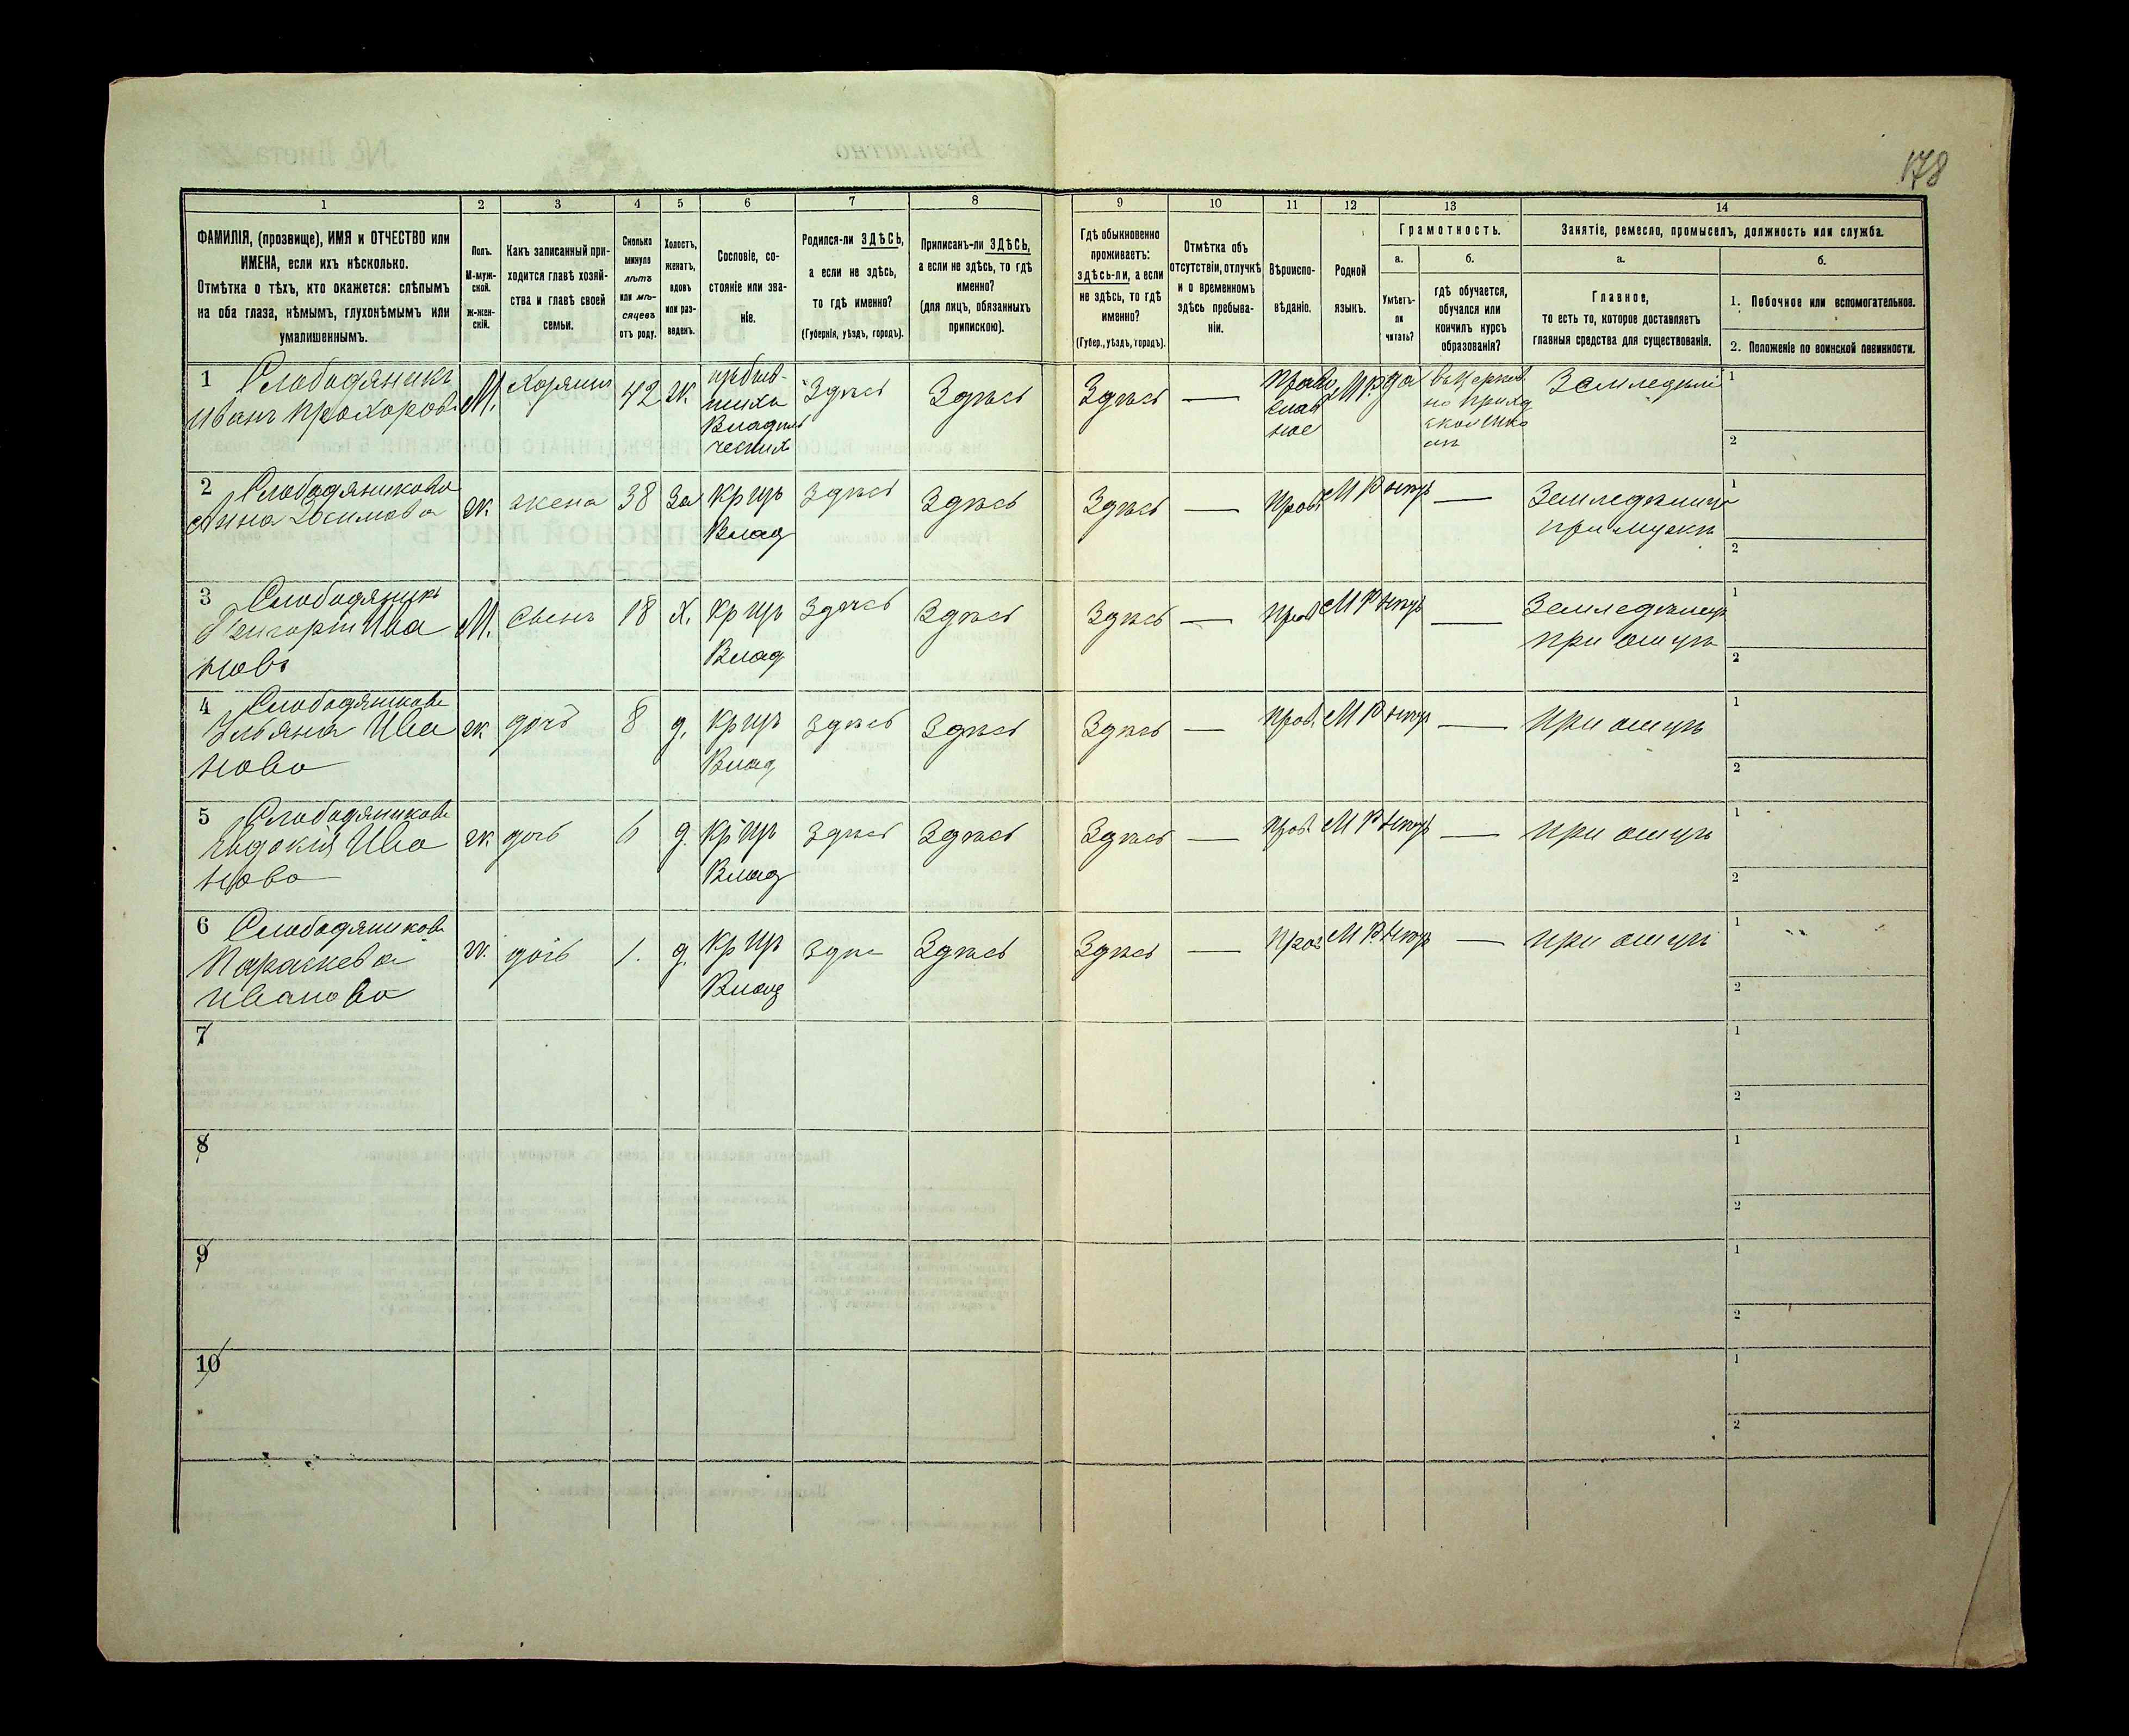 178
1
2
3
4
5
6
7
8
9
10
11
12
13
14
ФАМИЛІЯ, (прозвище), ИМЯ и ОТЧЕСТВО или
ИМЕНА, если ихъ нѣсколько.
Отмѣтка о тѣхъ, кто окажется: слѣпымъ
на оба глаза, нѣмымъ, глухонѣмымъ или
умалишеннымъ.
Полъ.
М-муж-
ской.
ж-жен-
скій.
Какъ записанный при-
ходится главѣ хозяй-
ства и главѣ своей
семьи.
Сколько
минуло
лѣтъ
или мѣ-
сяцевъ
отъ роду.
Холостъ,
женатъ,
вдовъ
или раз-
веденъ.
Сословіе, со-
стояніе или зва-
ніе.
Родился-ли ЗДѢСЬ,
а если не здѣсь,
то гдѣ именно?
(Губернія, уѣздъ, городъ).
Приписанъ-ли ЗДѢСЬ,
а если не здѣсь, то гдѣ
именно?
(для лицъ, обязанныхъ
припискою).
Гдѣ обыкновенно
проживаетъ:
здѣсь-ли, а если
не здѣсь, то гдѣ
именно?
(Губер., уѣздъ, городъ).
Отмѣтка объ
отсутствіи, отлучкѣ
и о временномъ
здѣсь пребыва-
ніи.
Вѣроиспо-
вѣданіе.
Родной
языкъ.
Грамотность.
а.
Умѣетъ-
ли
читать?
б.
гдѣ обучается,
обучался или
кончилъ курсъ
образованія?
Занятіе, ремесло, промыселъ, должность или служба.
а.
Главное,
то есть то, которое доставляетъ
главныя средства для существованія.
б.
1. Побочное или вспомогательное.
2. Положеніе по воинской повинности.
1 Слободяникъ
Иванъ Прохоров
М. Хозяинъ 42 ж.
Здѣсь Здѣсь Здѣсь —
Право
слав
ное
М.р. да
Земледѣлі
1
2
2 Слободяникова
Анна
ж. жена 38 За Кр изъ
Влад
Здѣсь Здѣсь Здѣсь — Прав М Р нѣтъ —
Земледѣлица
при мужѣ
1
2
3 Слободяникъ
Григорій Ива
новъ
М. Сынъ 18 Х. Кр изъ
Влад
Здѣсь Здѣсь Здѣсь — Прав М Р нѣтъ —
Земледѣлецъ
при отцѣ
1
2
4 Слободяникова
Ульяна Ива
нова
ж дочь 8 д. Кр изъ
Влад
Здѣсь Здѣсь Здѣсь — Прав. М Р нѣтъ — при отцѣ
1
2
5 Слободяникова
Евдокія Ива
нова
ж дочь 6 д. Кр изъ
Влад
Здѣсь Здѣсь Здѣсь — Прав. М Р нѣтъ — при отцѣ
1
2
6 Слободяникова
Параскева
Иванова
ж. дочь 1. д. Кр изъ
Влад
Здѣ Здѣсь Здѣсь — Прав М Р нѣтъ — при отцѣ
1
2
7
1
2
8
1
2
9
1
2
10
1
2